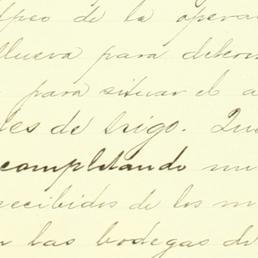 de la opera
llueva para determ
para situar el a
les de trigo. Que
completando mu
recibidos de los m
las bodegas de